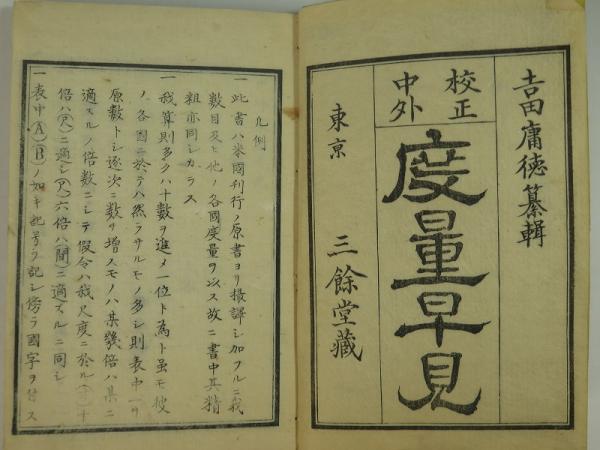 吉田庸徳纂輯
校正
中外
度量早見
東京
三餘堂藏
凡例
一此書ハ米國刊行ノ原書ヨリ撮譯シ加フルニ我
數目及ヒ他ノ各國度量ヲ以ス故ニ書中其精
粗亦同シカラス
一我算則多クハ十數ヲ進メ一位ト為ト雖モ彼
ノ各國ニ於テハ然ラサルモノ多シ則表中一ノ
原數トシ逐次ニ數ヲ增スモノハ某幾倍ハ某ニ
適スルノ倍數ニシテ假令ハ我尺度ニ於ル(寸)十
倍ハ(尺)ニ適シ(尺)六倍ハ(間)ニ適スルニ同シ
一表中(A)(B)ノ如キ記号ヲ記シ傍ラ國字ヲ付ス